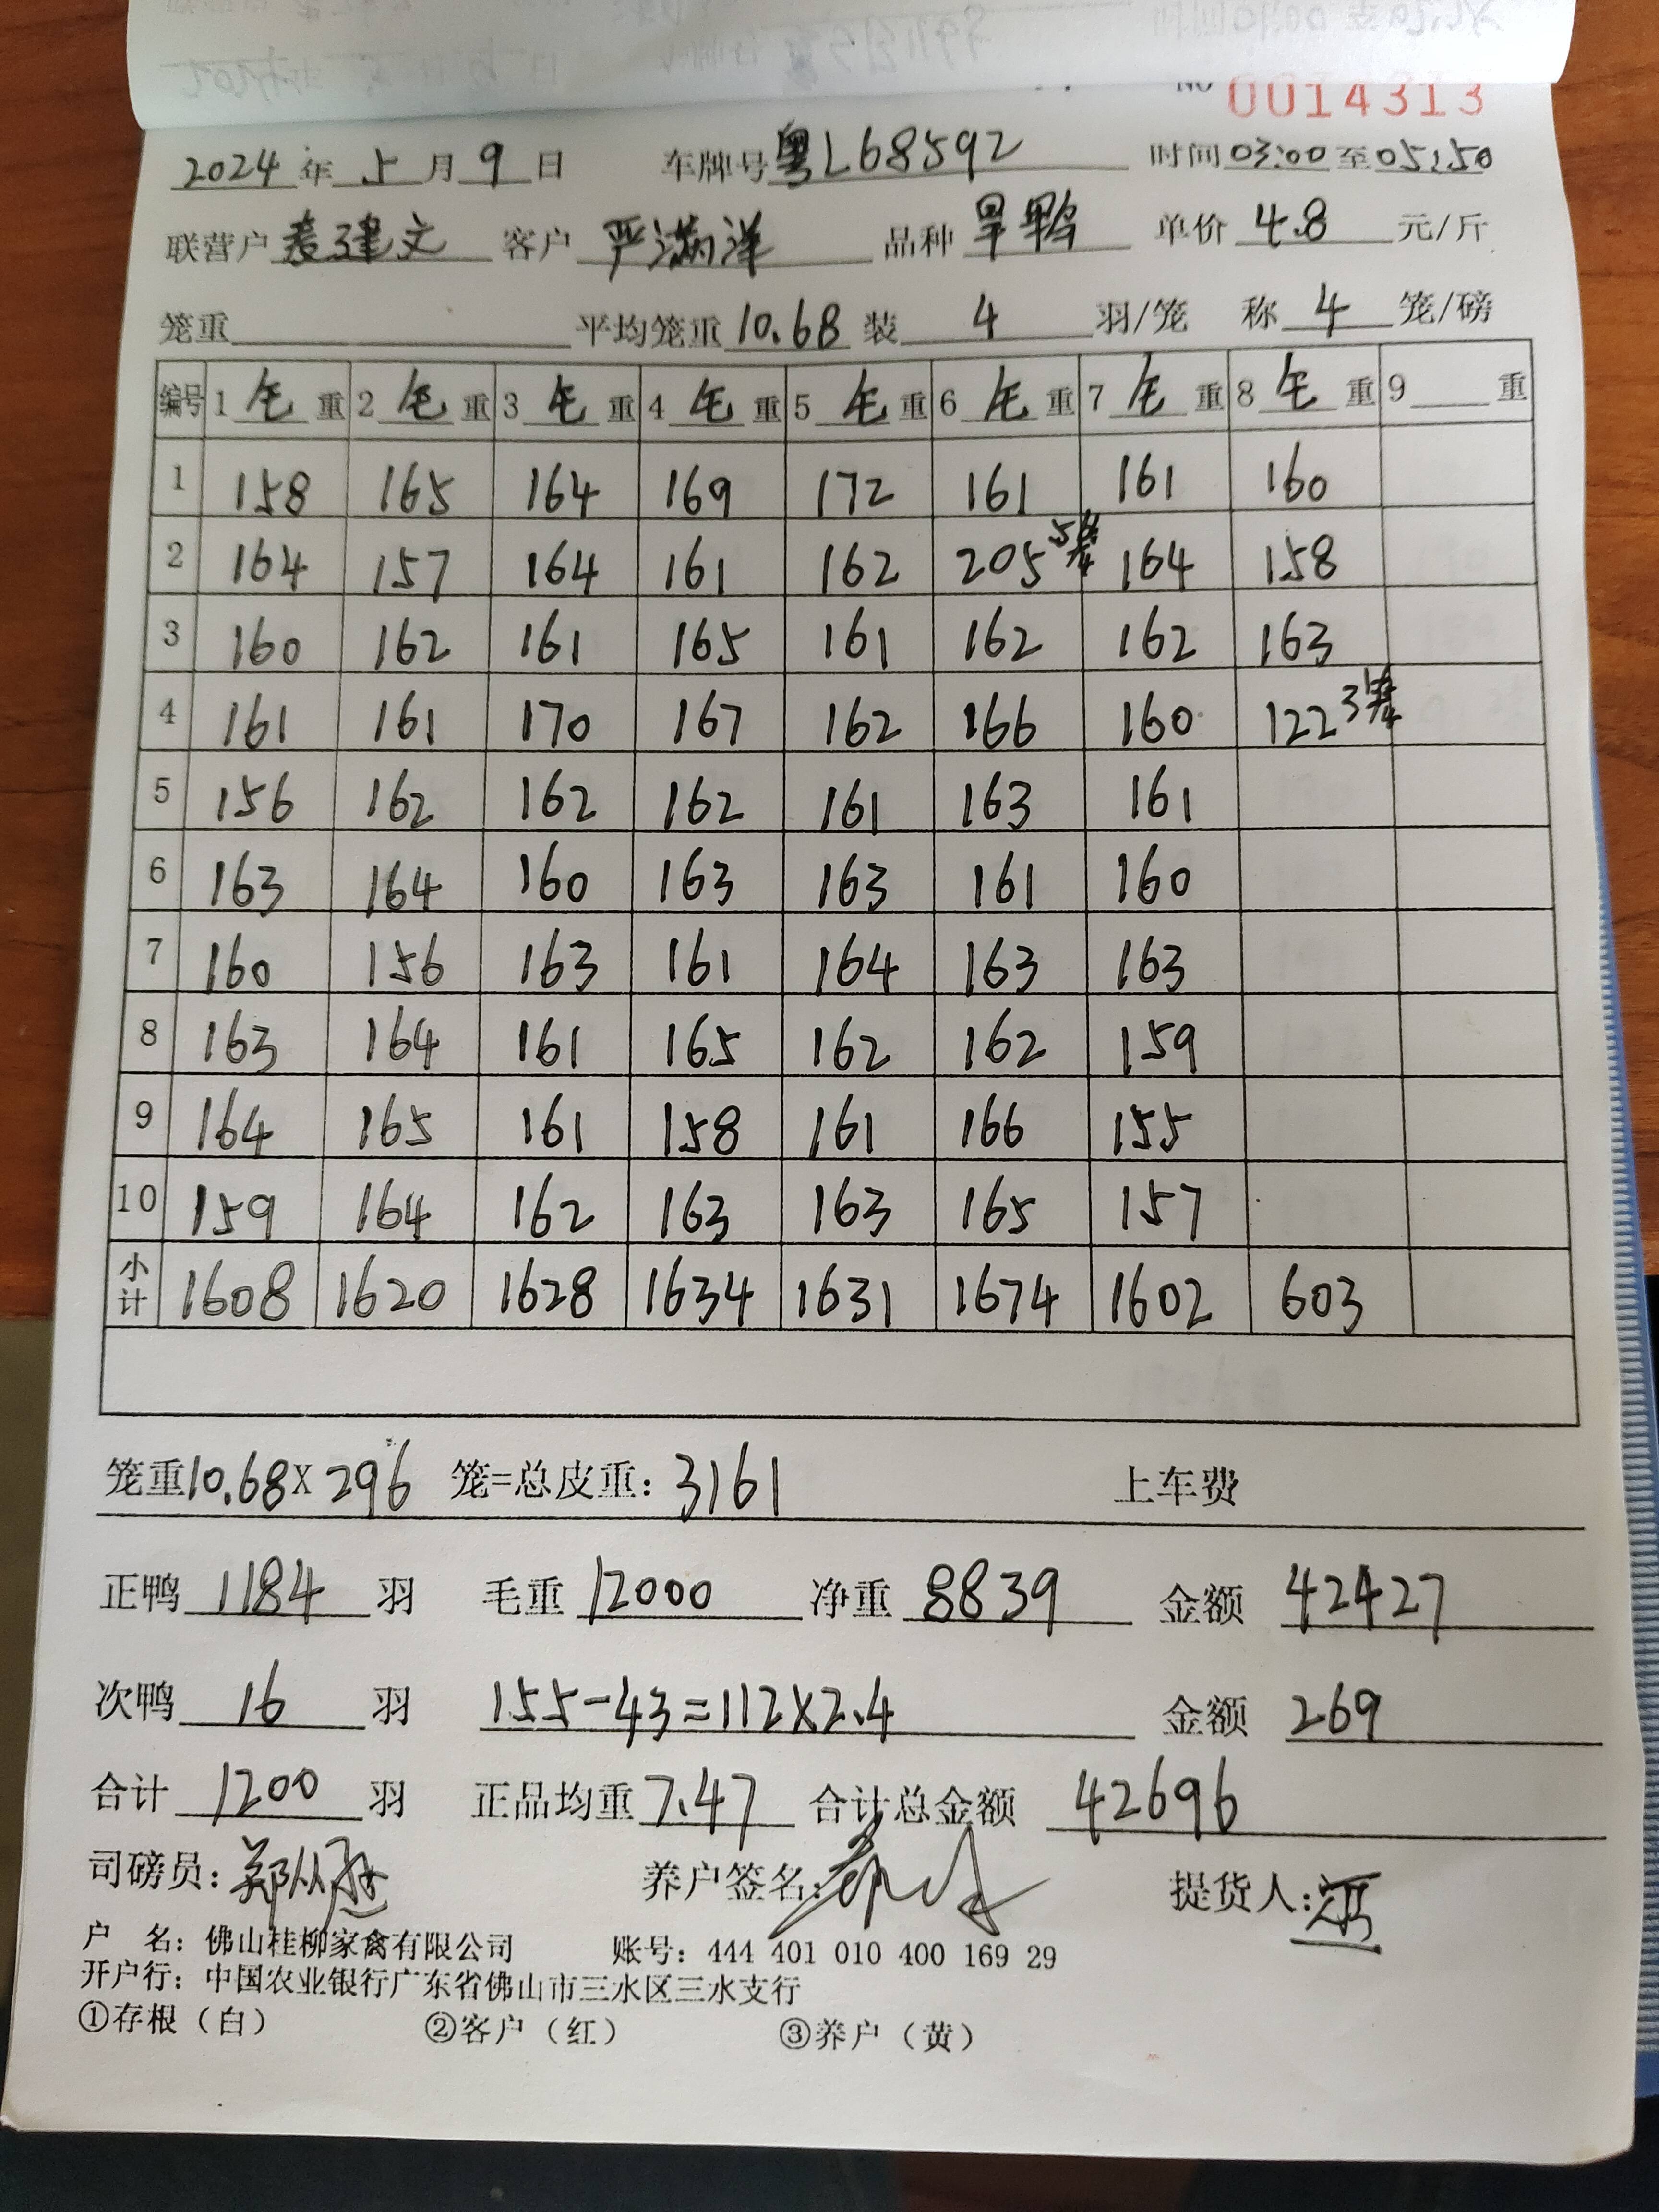 NO 0014313
2024年5月9日 车牌号粤L68592 时间03:00至05:50
联营户麦建文 客户严满洋 品种旱鸭 单价4.8元/斤
笼重 平均笼重10.68 装4羽/笼 称4笼/磅
编号 1毛重 2毛重 3毛重 4毛重 5毛重 6毛重 7毛重 8毛重 9重
1 158 165 164 169 172 161 161 160
2 164 157 164 161 162 205 5笼 164 158
3 160 162 161 165 161 162 162 163
4 161 161 170 167 162 166 160 122 3笼
5 156 162 162 162 161 163 161
6 163 164 160 163 163 161 160
7 160 156 163 161 164 163 163
8 163 164 161 165 162 162 159
9 164 165 161 158 161 166 155
10 159 164 162 163 163 165 157
小计 1608 1620 1628 1634 1631 1674 1602 603
笼重10.68X296 笼=总皮重:3161 上车费
正鸭1184羽 毛重12000 净重8839 金额42427
次鸭16羽 155-43=112X2.4 金额269
合计1200羽 正品均重7.47 合计总金额42696
司磅员: 养户签名: 提货人:
户 名: 佛山桂柳家禽有限公司 账号: 444 401 010 400 169 29
开户行: 中国农业银行广东省佛山市三水区三水支行
①存根(白) ②客户(红) ③养户(黄)